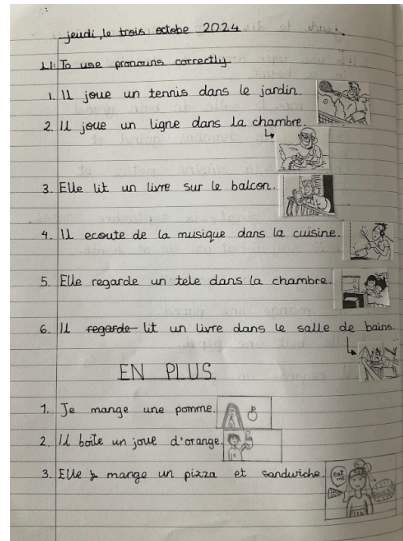 jeudi, le trois octobre 2024
LI: To use pronouns correctly.
1. Il joue un tennis dans le jardin.
2. Il joue un ligne dans la chambre.
3. Elle lit un livre sur le balcon.
4. Il ecoute de la musique dans la cuisine.
5. Elle regarde un tele dans la chambre.
6. Il regarde lit un livre dans le salle de bains.
EN PLUS
1. Je mange une pomme.
2. Il boite un joue d'orange.
3. Elle mange un pizza et sandwiche.